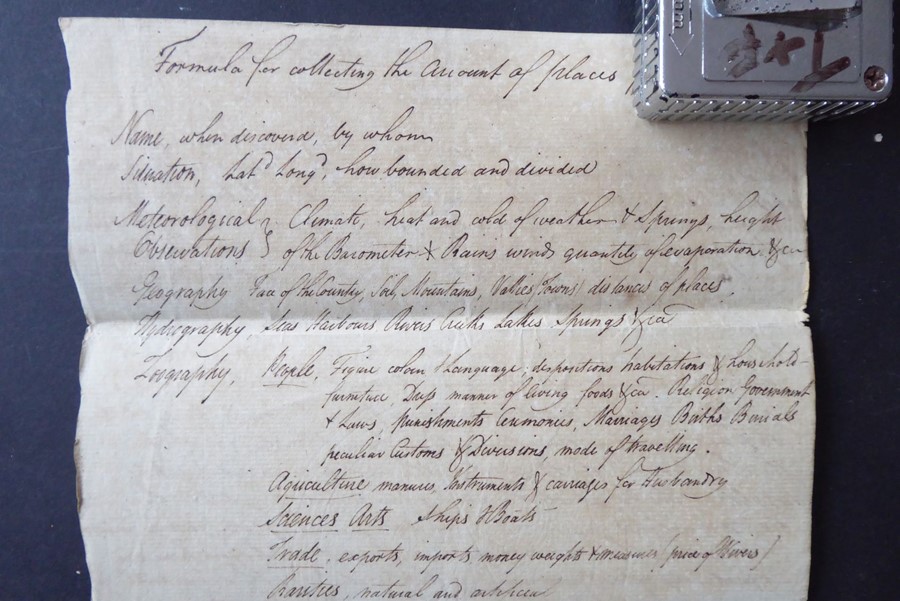 Formula for collecting the account of places
Name, when discoverd, by whom
Situation, Latd Longd, how bounded and divided
Meteorological } Climate, heat and cold of weather & Springs, height
Observations } of the Barometer & Rains winds quantity of evaporation &ca
Geography Face of the County, Soil, Mountains, Vallies (Towns) distances of places
Hydrography, Seas Harbours Rivers Creeks Lakes Springs &ca
Zoography, People, Figure colour & Language; dispositions habitations & household
furniture, Dress manner of living foods &ca. Religion Government
& Laws, Punishments Ceremonies, Marriages Births Burials
peculiar Customs & Diversions, mode of travelling.
Agriculture manures, Instruments & carriages for Husbandry
Sciences Arts Ships & Boats
Trade, exports, imports, money weights & measures (price of
Rarities, natural and artificial